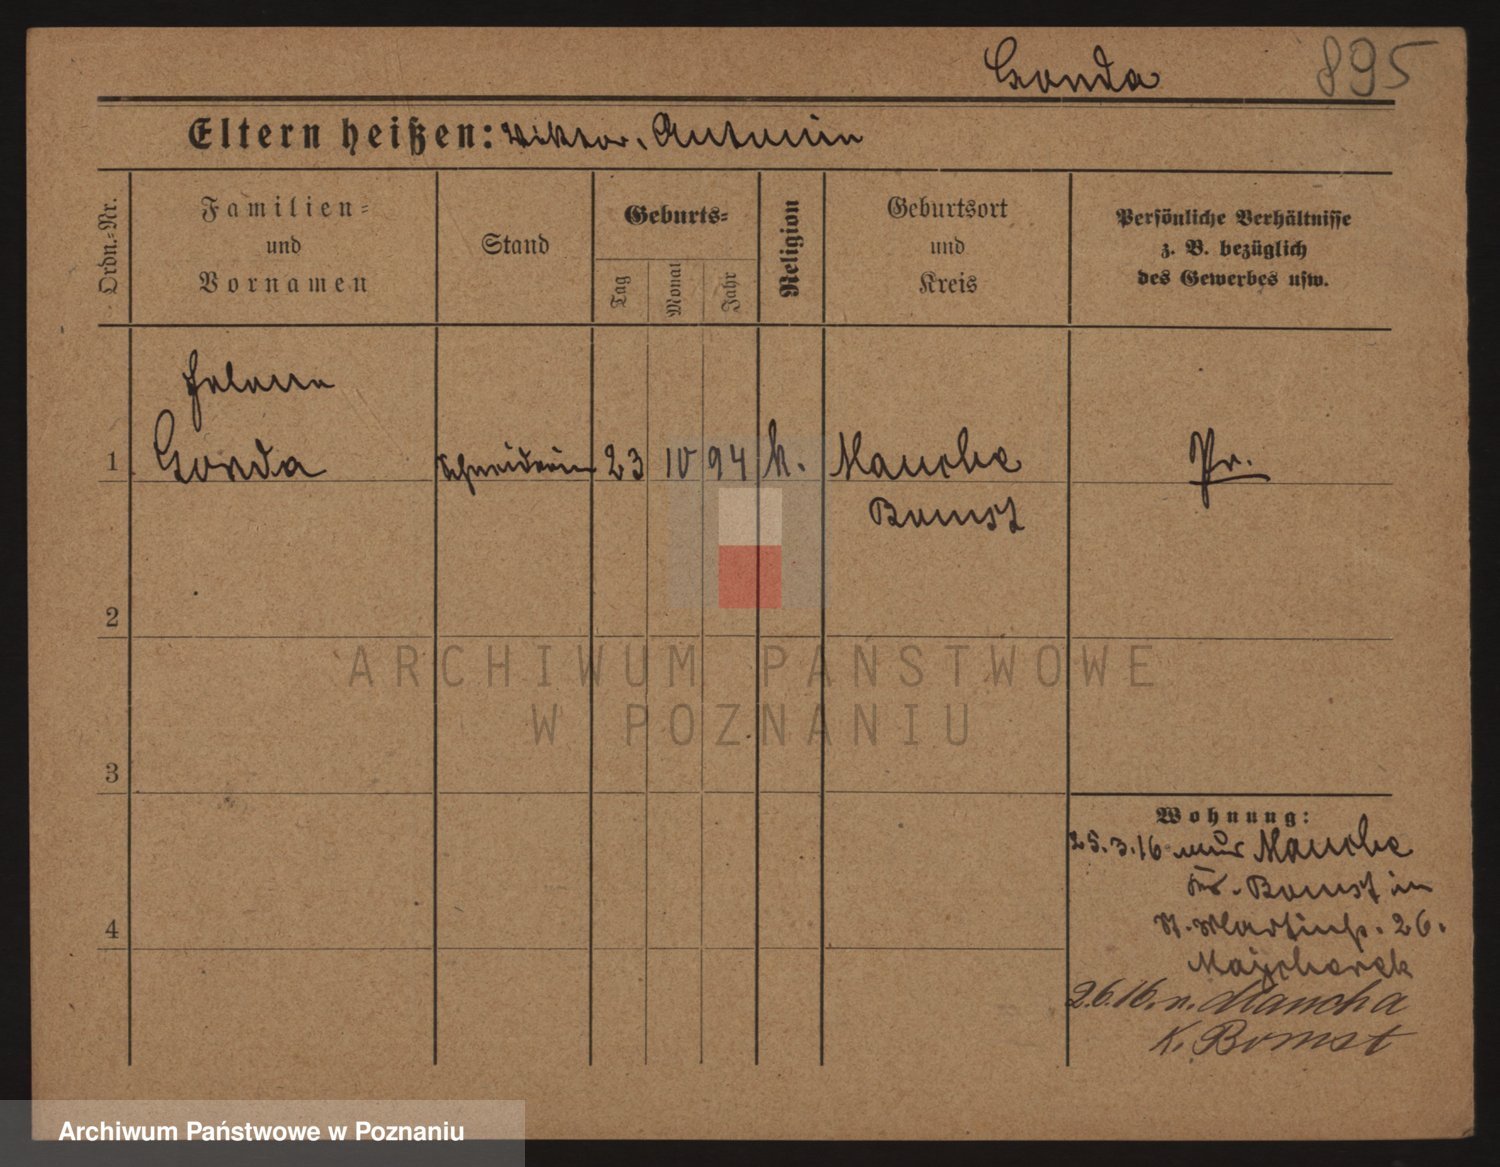 Gonda 895
Eltern heißen: Viktor, Antonin
Ordn.-Nr.
Familien-
und
Vornamen
Stand
Geburts-
Tag
Monat
Jahr
Religion
Geburtsort
und
Kreis
Persönliche Verhältnisse
z. B. bezüglich
des Gewerbes usw.
Helena
1 Gonda Schneiderin 23 10 94 k. Mauche Pr.
Bomst
2
ARCHIWUM PAŃSTWOWE
W POZNANIU
3
Wohnung:
25.3.16 aus Mauche
Kr. Bomst in
St. Martinstr. 26.
Majcherek
4
2.6.16. n. Maucha
K. Bomst
Archiwum Państwowe w Poznaniu